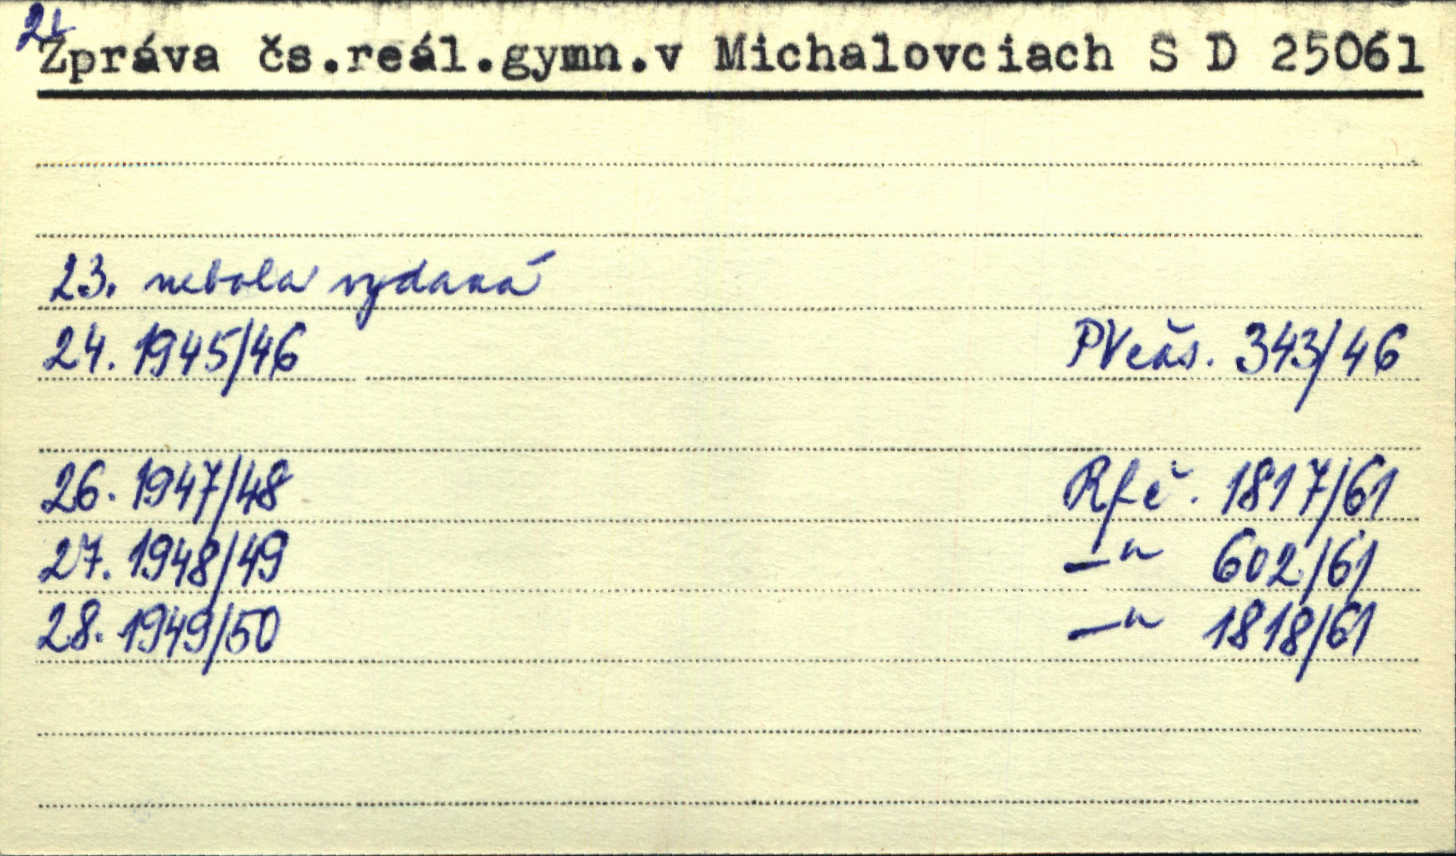 2.
Zpráva čs.reál.gymn.v Michalovciach S D 25061
23. nebola vydaná
24. 1945/46 PVčas. 343/46
26. 1947/48 Rfč. 1817/61
27. 1948/49 —"— 602/61
28. 1949/50 —"— 1818/61